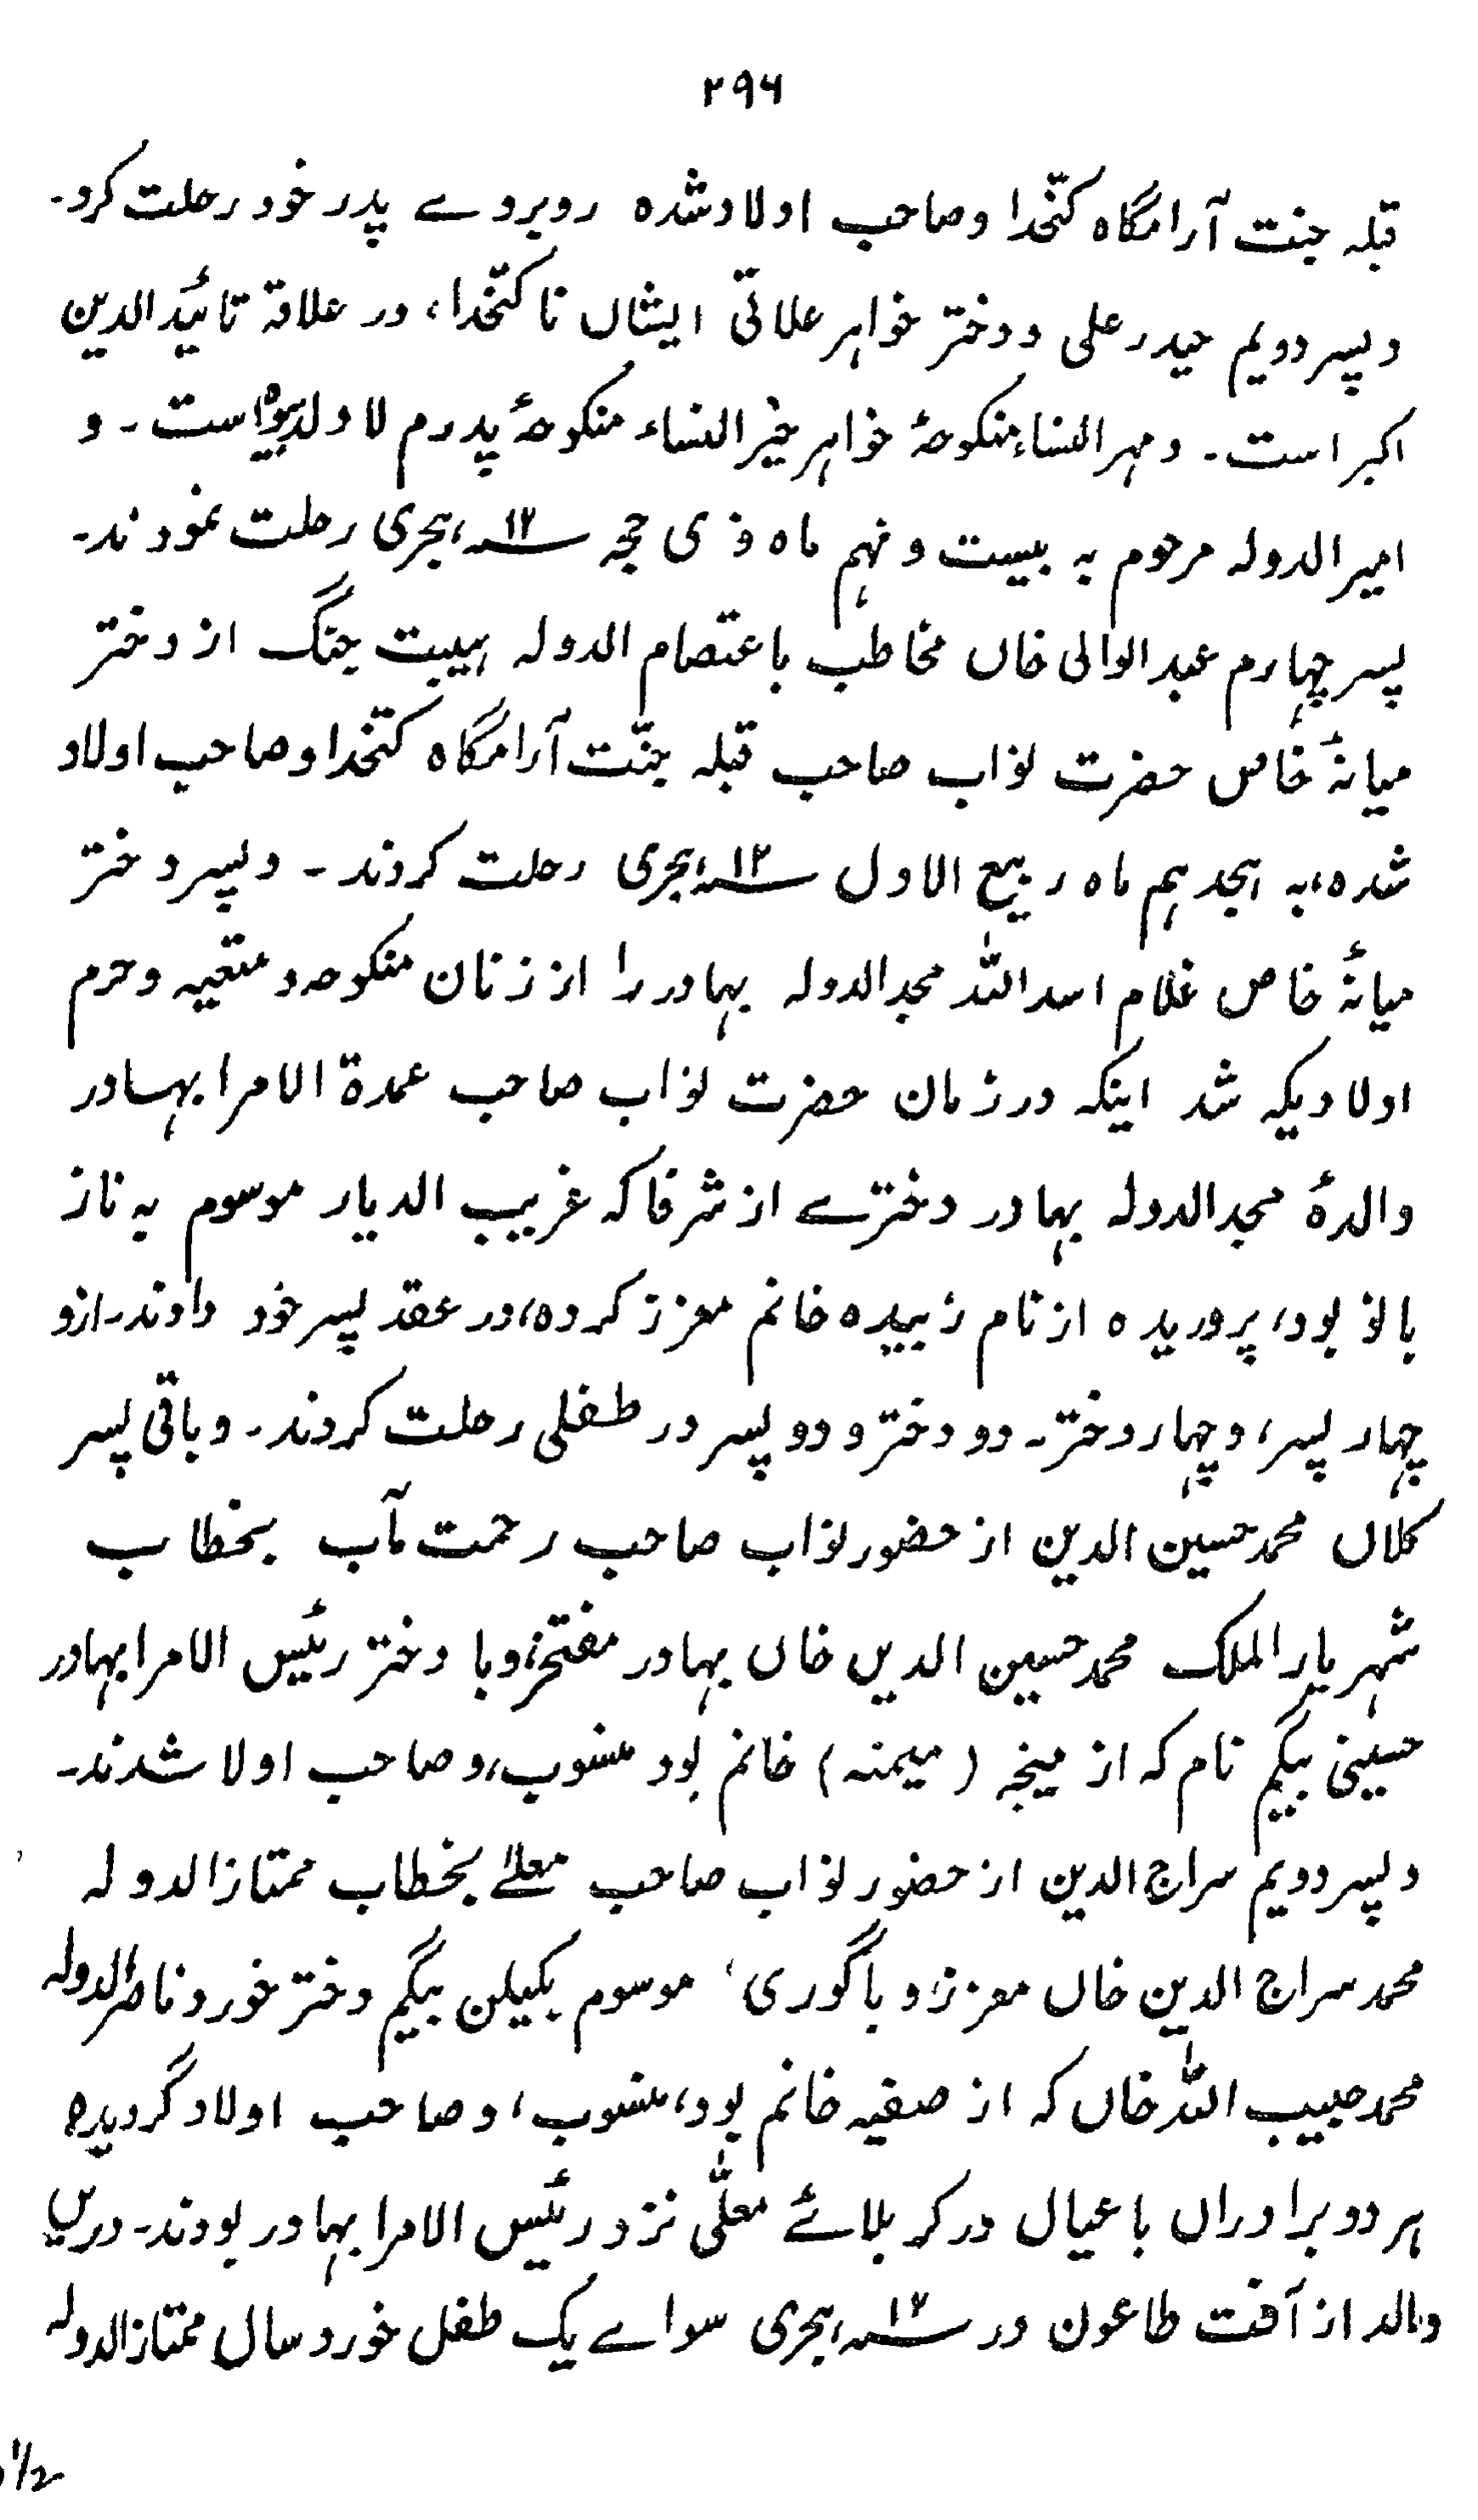 ۲۹۶
قبلہ جنت آرامگاہ کتخدا و صاحب اولاد شدہ روبروے پدر خود رحلت کرد۔
و پسر دویم حیدر علی و دختر خواہر علاتی ایشاں ناکتخدا، در علاقۂ تائید الدین
اکبر است۔ و مہر النساء منکوحۂ خواہر خیر النساء منکوحۂ پدرم لا ولد بیوہ است۔ و
امیر الدولہ مرحوم بہ بیست و نہم ماہ ذی حجہ ۱۲ھ ہجری رحلت نمودند۔
پسر چہارم عبد الوالی خاں مخاطب باعتصام الدولہ ہیبت جنگ از دختر
میانۂ خاص حضرت نواب صاحب قبلہ جنّت آرامگاہ کتخدا و صاحب اولاد
شدہ، بہ ہجدہم ماہ ربیع الاول ۱۲ھ ہجری رحلت کردند۔ و پسر دختر
میانۂ خاص غلام اسد اللہ مجد الدولہ بہادر را از زنان منکوحہ و متعیہ و حرم
اولادیکہ شد اینکہ در زمان حضرت نواب صاحب عمدۃ الامرا بہادر
والدۂ مجد الدولہ بہادر دخترے از شرفا کہ غریب الدیار موسوم بہ ناز
بانو بود، پروریدہ از نام زبیدہ خانم معزز کردہ، در عقد پسر خود دادند۔ ازو
چہار پسر، و چہار دختر۔ دو دختر و دو پسر در طفلی رحلت کردند۔ و باقی پسر
کلاں محمد حسین الدین از حضور نواب صاحب رحمت مآب بخطاب
شہریار الملک محمد حسین الدیں خاں بہادر مفتخر، و با دختر رئیس الامرا بہادر
حسینی بیگم نام کہ از مینجہ (میمنہ) خانم بود منسوب، و صاحب اولا شدند۔
و پسر دویم سراج الدین از حضور نواب صاحب معلےٰ بخطاب ممتاز الدولہ
محمد سراج الدین خاں معزز، و باگوری، موسوم بکیلن بیگم دختر خورد ناصر الدولہ
محمد حبیب اللہ خاں کہ از صفیہ خانم بود، منسوب، و صاحب اولاد گردیدہ
ہر دو برادراں با عیال در کربلائے معلّی نزد رئیس الامرا بہادر بودند۔ دریں
و بالد از آفت طاعون در ۱۲ھ ہجری سواے یک طفل خورد سال ممتاز الدولہ